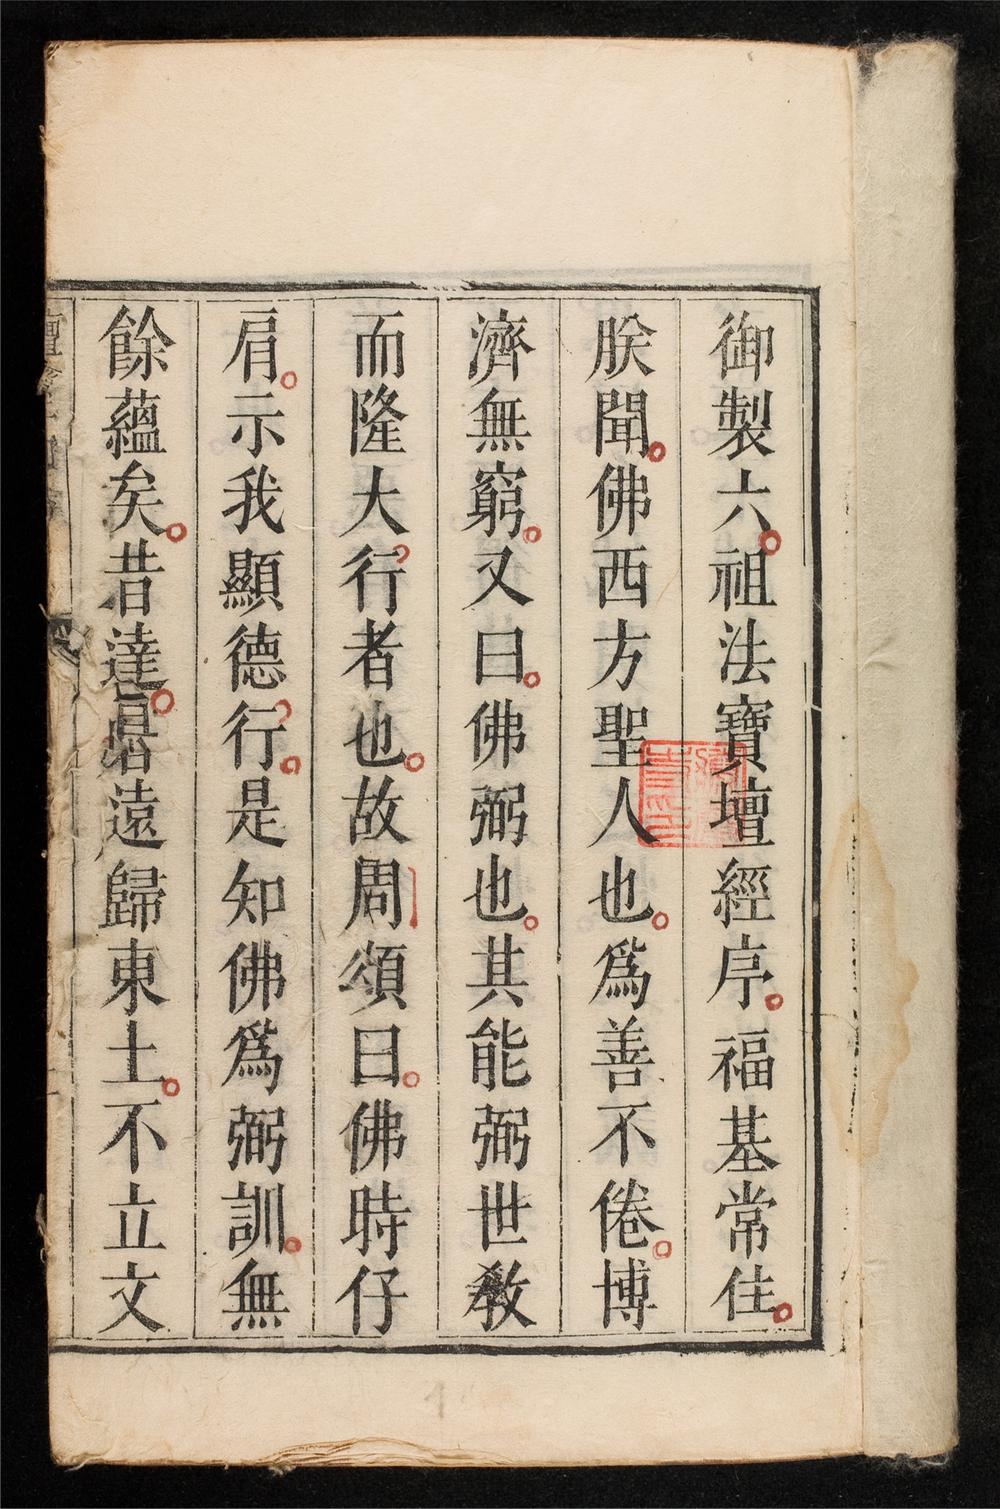 御製六祖法寶壇經序福基常住
朕聞佛西方聖人也爲善不倦博
濟無窮又曰佛弼也其能弼世教
而隆大行者也故周頌曰佛時仔
肩示我顯德行是知佛爲弼訓無
餘蘊矣昔達磨遠歸東土不立文